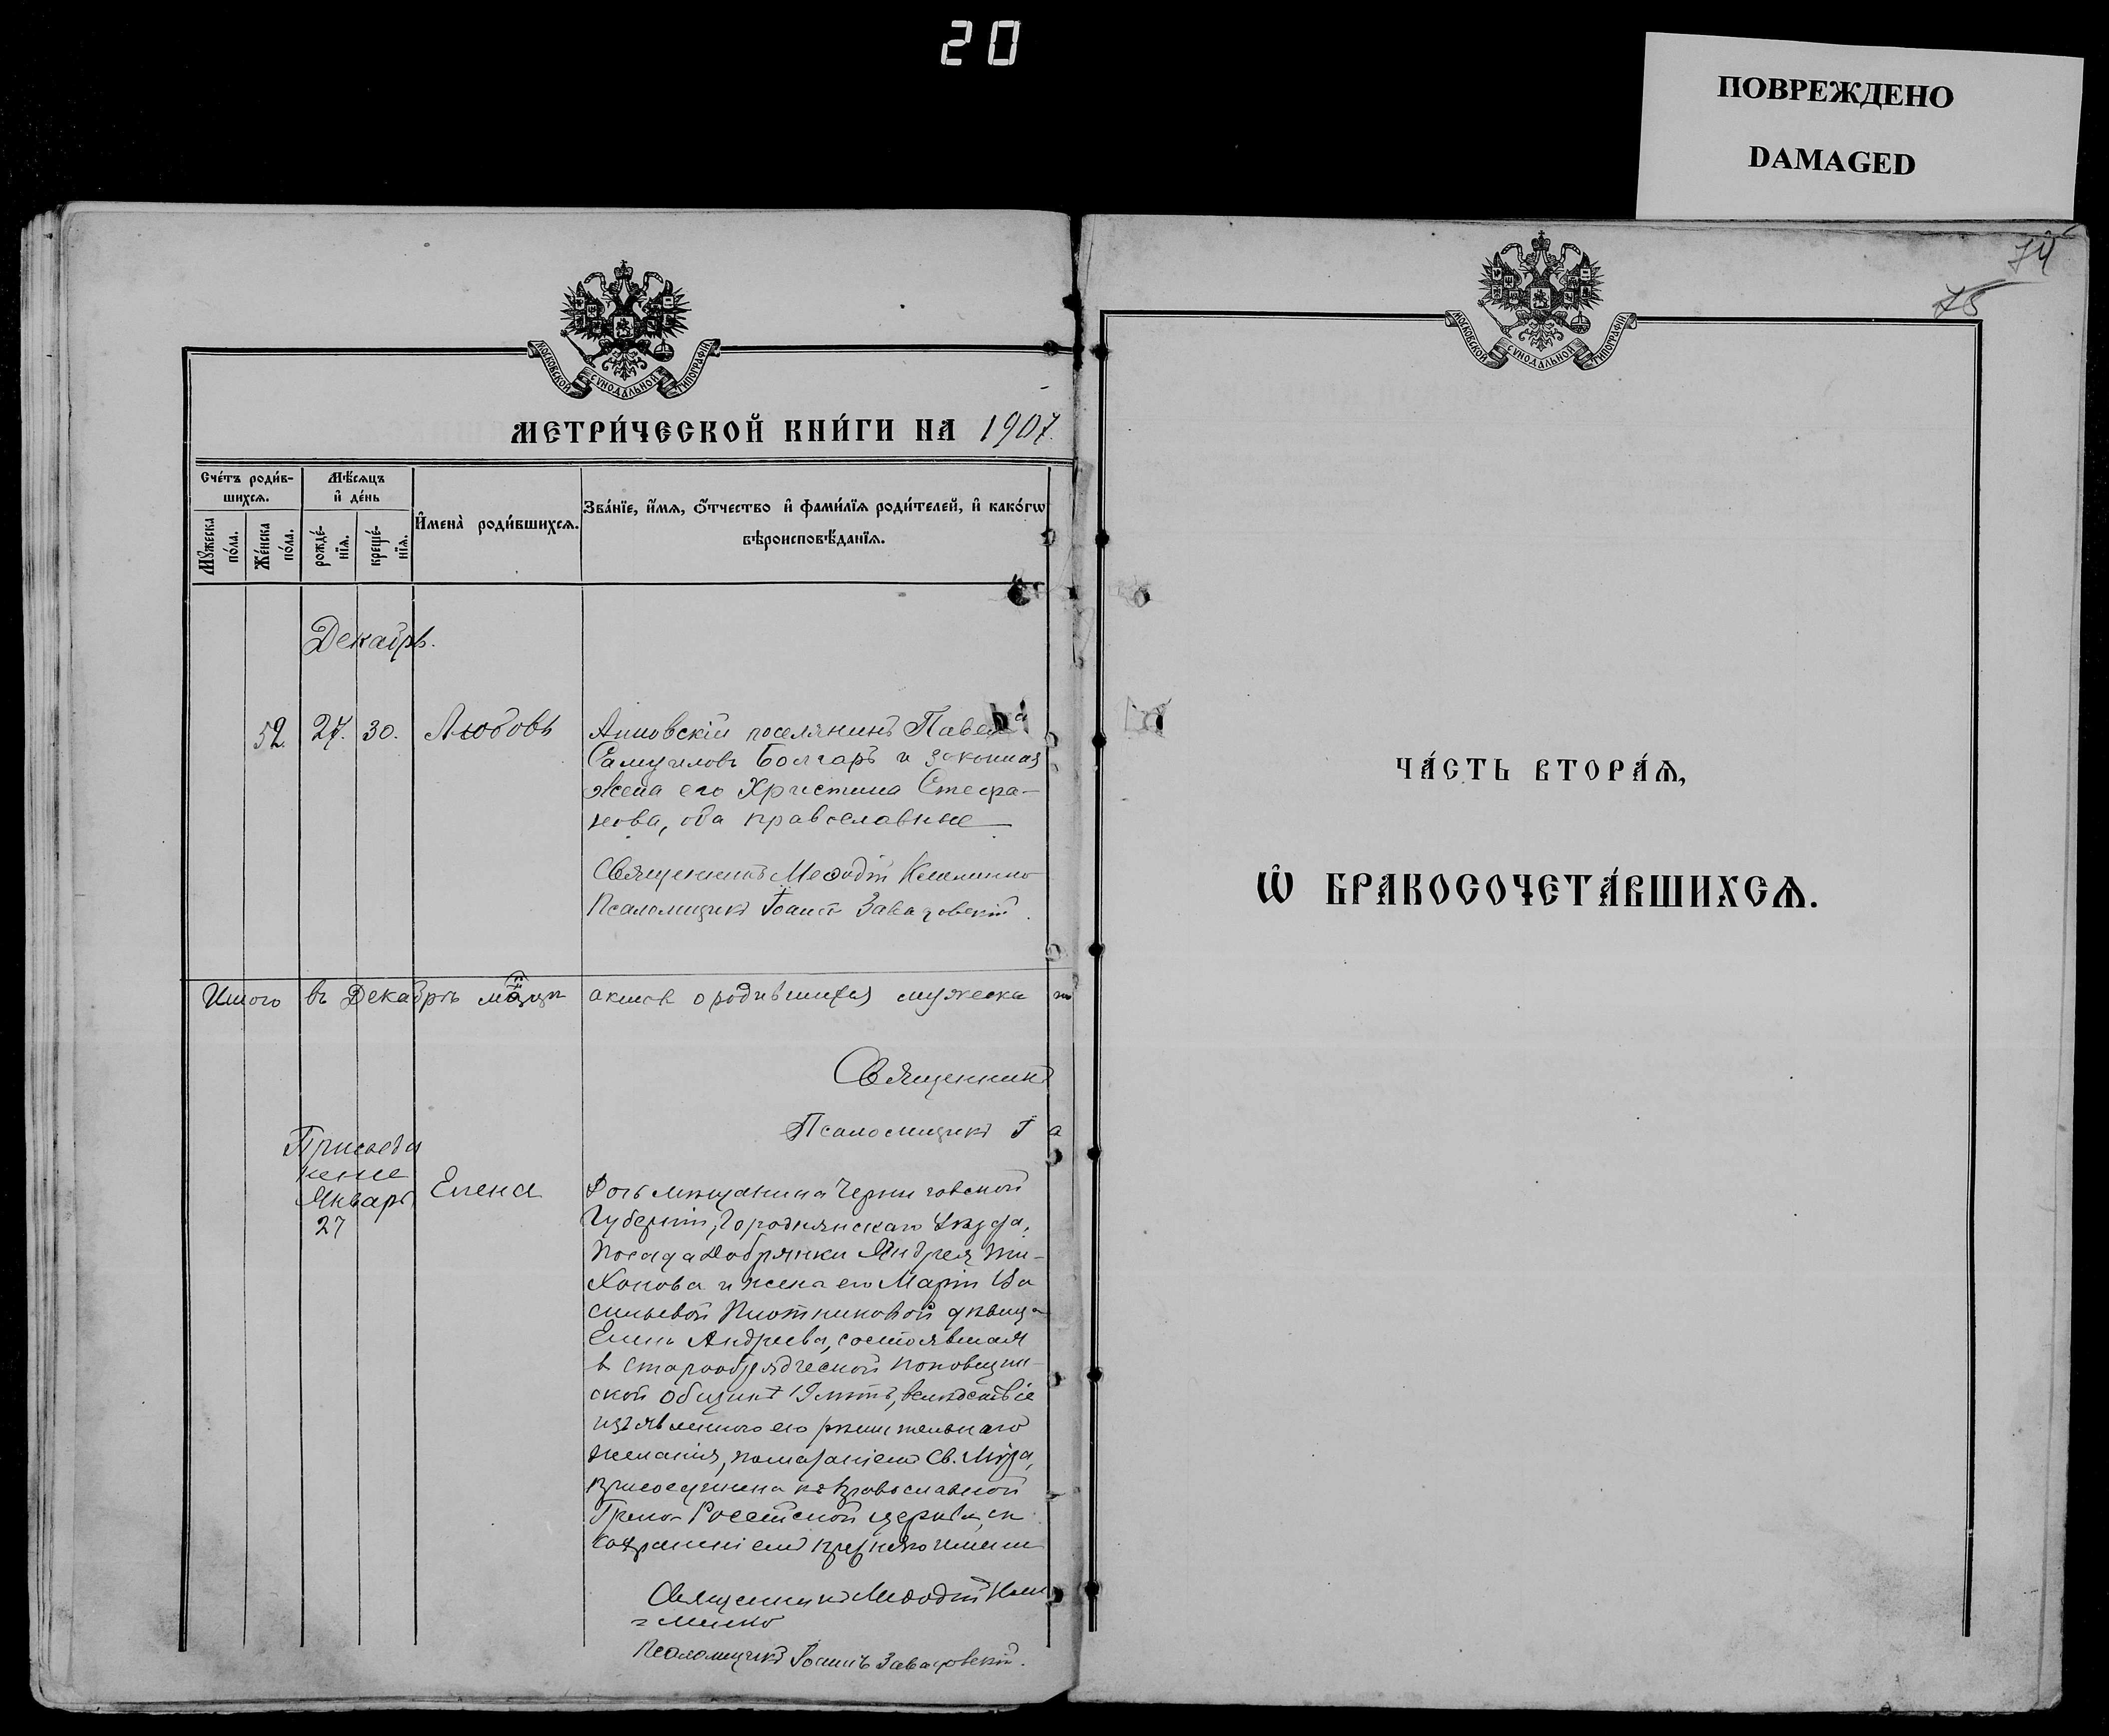 20
ПОВРЕЖДЕНО
DAMAGED
МОСКОВСКОЙ СУНОДАЛЬНОЙ ТИПОГРАФІИ
МЕТРИ́ЧЕСКОЙ КНИ́ГИ НА 1907.
Сче́тъ роди́в-
шихсѧ.
Мѣ́сѧцъ
и҆ де́нь
Мꙋ́жеска
по́ла.
Же́нска
по́ла.
рожде́-
нїѧ.
креще́-
нїѧ.
И҆мена̀ роди́вшихсѧ.
Зва́нїе, и҆́мѧ, ѻ҆́тчество и҆ фами́лїѧ роди́телей, и҆ како́гѡ
вѣроисповѣ́данїѧ.
Декабрь.
52. 27. 30. Любовь
поселянинъ Павелъ
Самуиловъ Болгаръ и законная
жена его Христина Стефа-
нова, оба православные
Священникъ Меѳодій
Псаломщикъ Іоаннъ Завадовскій.
Итого въ Декабрѣ мѣсяцѣ актовъ о родившихся мужеска
Священникъ
Псаломщикъ І
Присоеди
неніе
Январь
27
Елена
Дочь мѣщанина Черниговской
Губерніи, Городнянскаго Уѣзда,
посада Добрянки Андрея Ти-
хонова и жена его Маріи Ва
сильевой Плотниковой дѣвица
Елена Андреева, состоявшая
в старообрядческой поповщин-
ской общинѣ 19 лѣтъ, вслѣдствіе
изъявленного ею рѣшительнаго
желанія, помазаніемъ Св. Мѵра,
присоединена къ православной
Греко-Россійской церкви, съ
прежняго имени
Священникъ Меѳодій
Псаломщикъ Іоаннъ Завадовскій.
74
75
МОСКОВСКОЙ СУНОДАЛЬНОЙ ТИПОГРАФІИ
ЧА́СТЬ ВТОРА́Ѧ,
Ѡ҆ БРАКОСОЧЕТА́ВШИХСѦ.